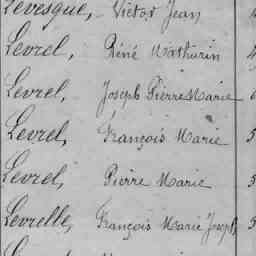 Levesque, Victor Jean
Levrel, Réné Mathurin
Levrel, Joseph Pierre Marie
Levrel, François Marie 5
Levrel, Pierre Marie 5
Levrelle, François Marie Joseph 5